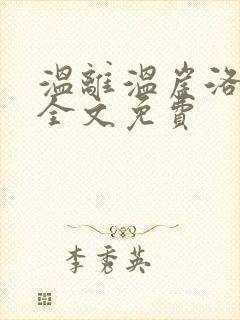 温離温崖洛
全文免費
李秀英